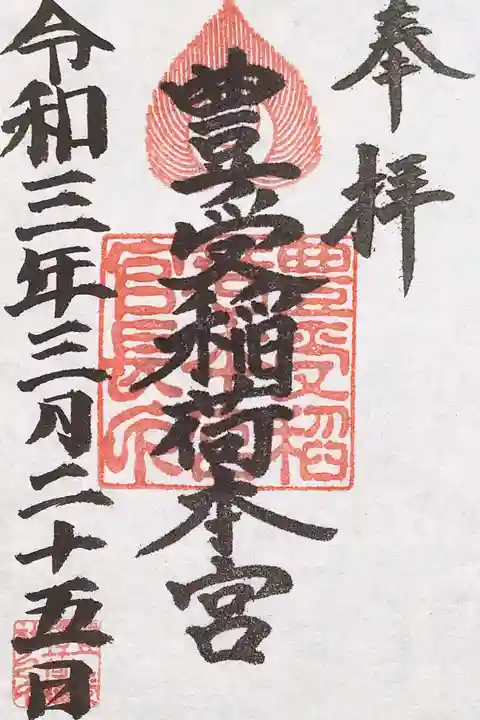 奉拝
豊受稲荷本宮
令和三年三月二十五日